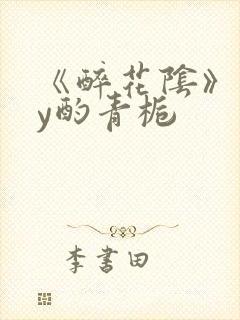 《醉花陰》
y酌青梔
李書田